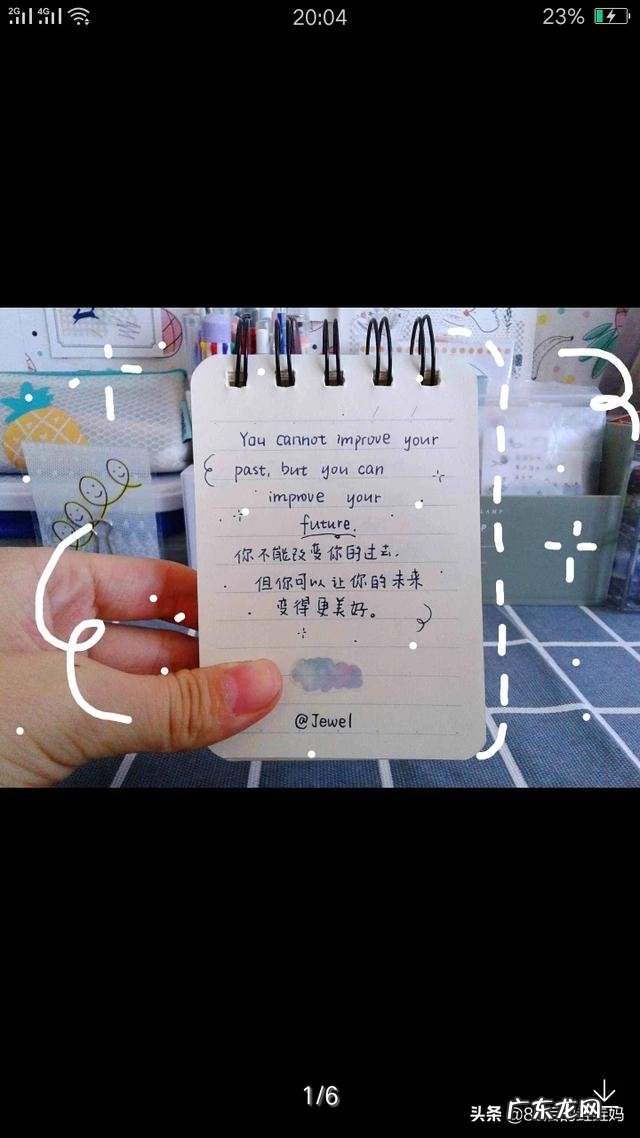 2G 4G 20:04 23%
You cannot improve your
past, but you can
improve your
future.
你不能改变你的过去.
但你可以让你的未来
变得更美好。
@Jewel
1/6
头条
广东龙网